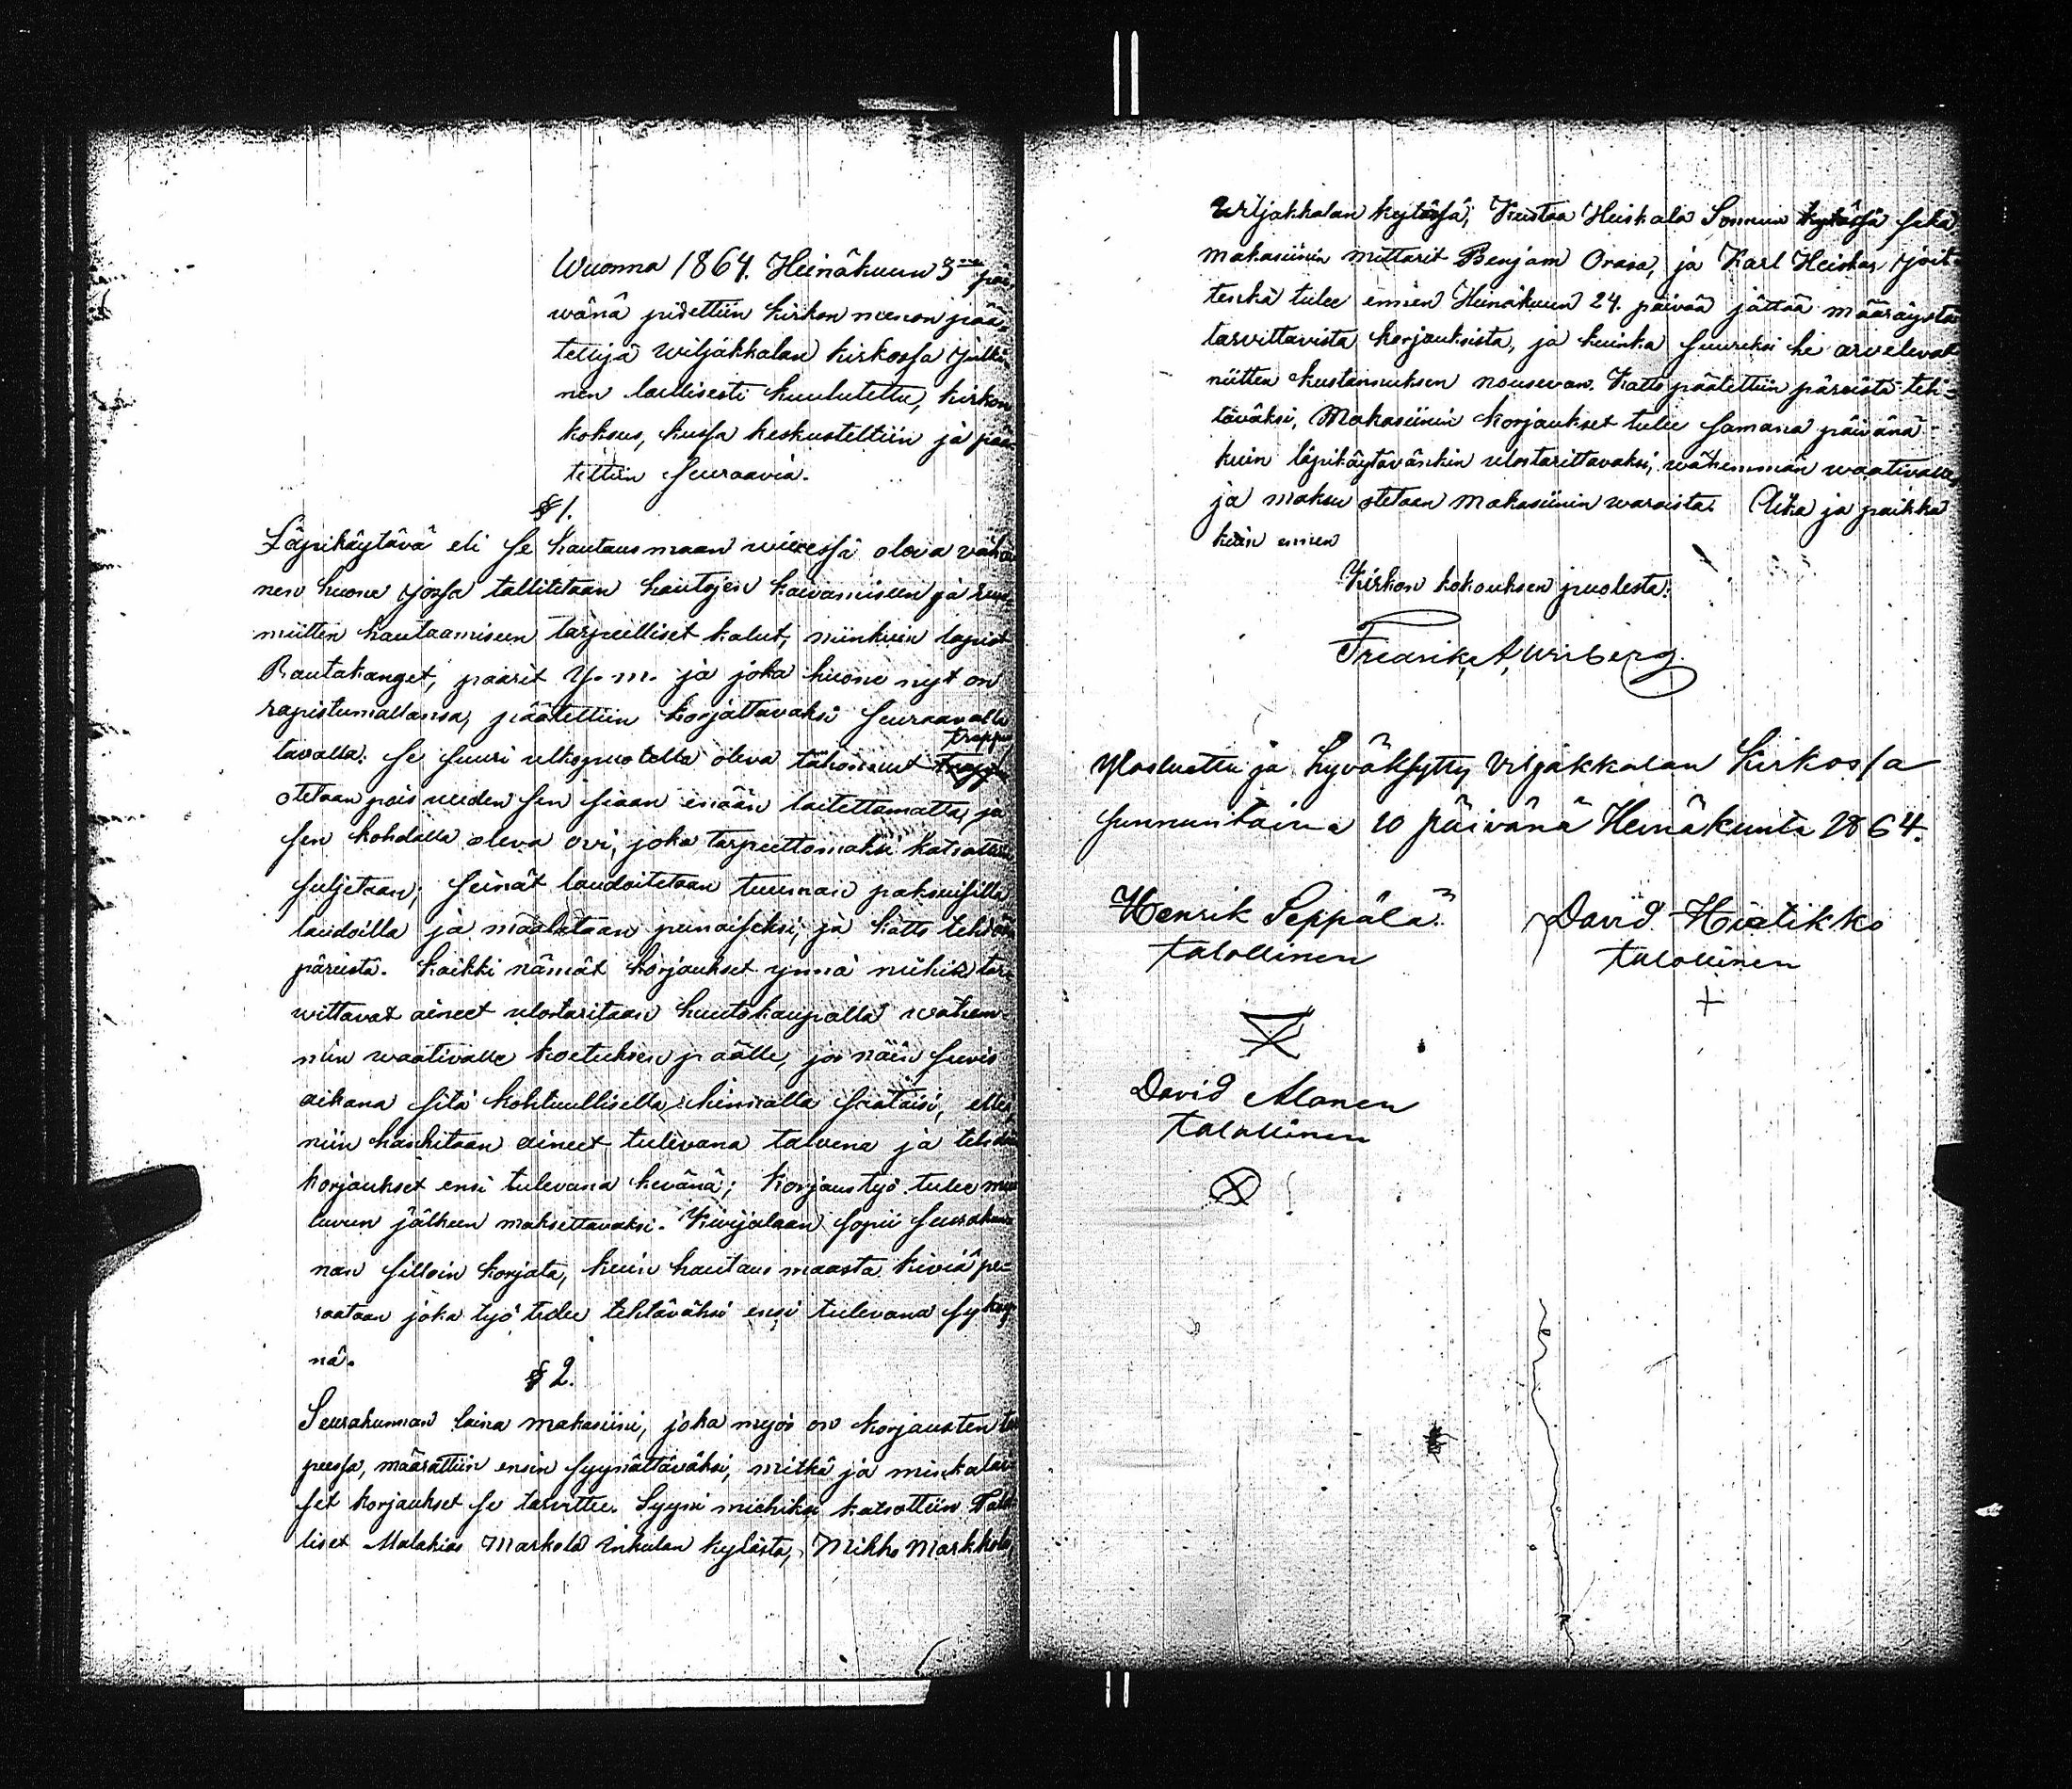 Wuonna 1864. Heinäkuun 3na päi-
wänä pidettiin kirkon menon pää-
tettyä Wiljakkalan kirkossa julki-
nen laillisesti kuulutettu, kirkon
kokous, kussa keskusteltiin ja pää-
tettiin seuraavia.
§ 1.
Läpikäytävä eli se hautausmaan wieressä oleva vähä-
nen huone jossa tallitetaan hautojen kaivamiseen ja ruu-
miitten hautaamiseen tarpeelliset kalut, niinkuin lapiot
Rautakanget, paarit y. m. ja joka huone nyt on
rapistumallansa, päätettiin korjattavaksi seuraavalla
tavalla: se suuri ulkopuolella oleva trappu
otetaan pois uuden sen siaan enään laitettamatta, ja
sen kohdalla oleva ovi, joka tarpeettomaksi katsottiin
suljetaan; seinät laudoitetaan tuuman paksuisilla
laudoilla ja maalataan punaiseksi; ja katto tehdään
päreistä. Kaikki nämät korjaukset ynnä niihin tar-
wittavat aineet ulostaritaan huutokaupalla wähem-
min waativalle koetuksen päälle, jos näin suvis
aikana sitä kohtuullisella hinnalla saataisi, ellei,
niin hankitaan aineet tulevana talvena ja tehdään
korjaukset ensi tulevana kevänä; Korjaustyö tulee man-
luvun jälkeen maksettavaksi. Kivijalaan sopii seurakun-
nan silloin korjata, kuin hautaus maasta kiviä pe-
raataan joka työ tulee tehtäväksi ensi tulevana syksy-
nä.
§ 2.
Seurakunnan laina makasiini, joka myös on korjausten tar
peessa, määrättiin ensin syynättäväksi, mitkä ja minkalai-
set korjaukset se tarvittee. Syyni miehiksi katsottiin Talol
liset Malakias Markola Inkulan kylästä, Mikko Markkola,
Wiljakkalan kylässä, Kustaa Heiskala Sonnun kylässä sekä
makasiinin mittarit Benjam Orasa, ja Karl Heiskas, joit-
tenka tulee ennen Heinäkuun 24. päivää jättää määräystä
tarvittavista korjauksista, ja kuinka suureksi he arvelevat
niitten kustannuksen nousevan. Katto päätettiin päreistä teh-
täväksi, Makasiinin korjaukset tulee samana päivänä
kuin läpikäytävänkin ulostarittavaksi, wähemmän waativalle,
ja maksu otetaan makasiinin waroista. Aika ja paikka
kuin ennen
Kirkon kokouksen puolesta:
Fredrik A. Wiberg.
Ylösluettu ja hyväksytty Viljakkalan Kirkossa
sunnuntaina 10 päivänä Heinäkuuta 1864.
Henrik Seppälä David Hietikko
talollinen talollinen
+
David Alanen
talollinen